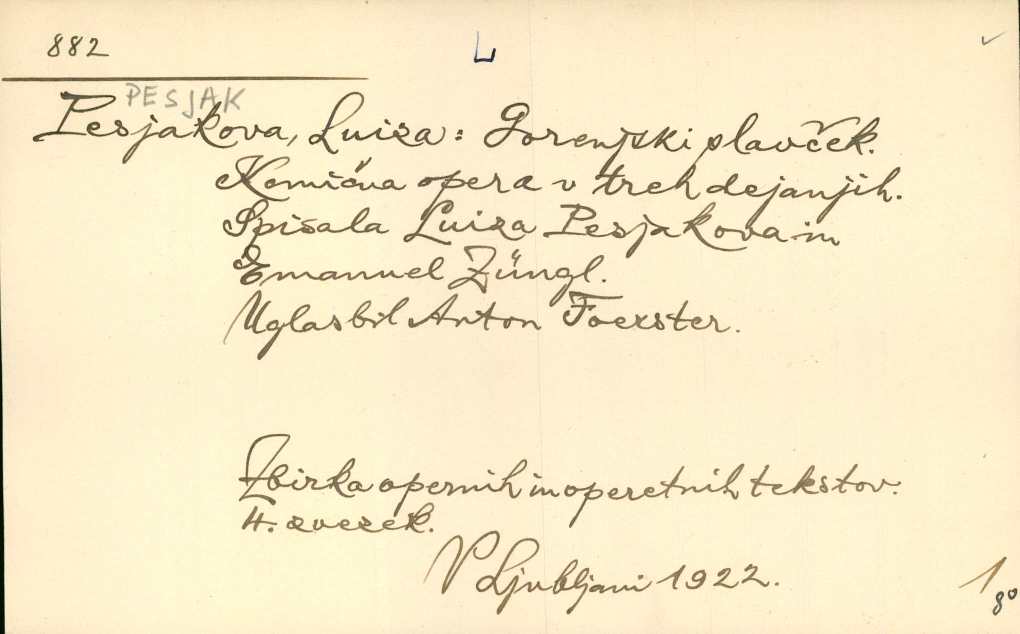 882
L
PESJAK
Pesjakova, Luiza: Gorenjski slavček.
Komična opera v treh dejanjih.
Spisala Luiza Pesjakova in
Emanuel Züngl.
Uglasbil Anton Foerster.
Zbirka opernih in operetnih tekstov.
4. zvezek.
V Ljubljani 1922.
1
8°